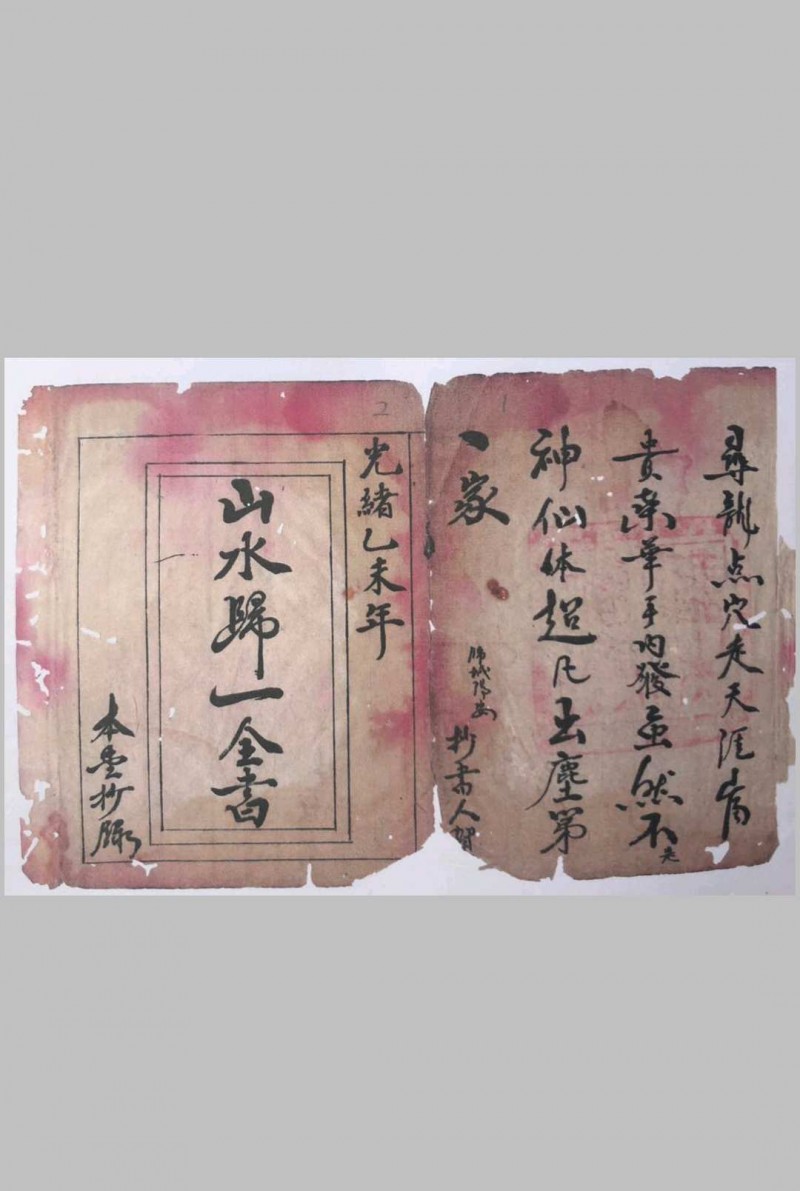 1
尋龍点穴走天涯富
貴荣華手内發虽然不
是
神仙体超凡出塵第
一家
抄書人賀
2
光緒乙未年
山水歸一全書
本堂抄錄